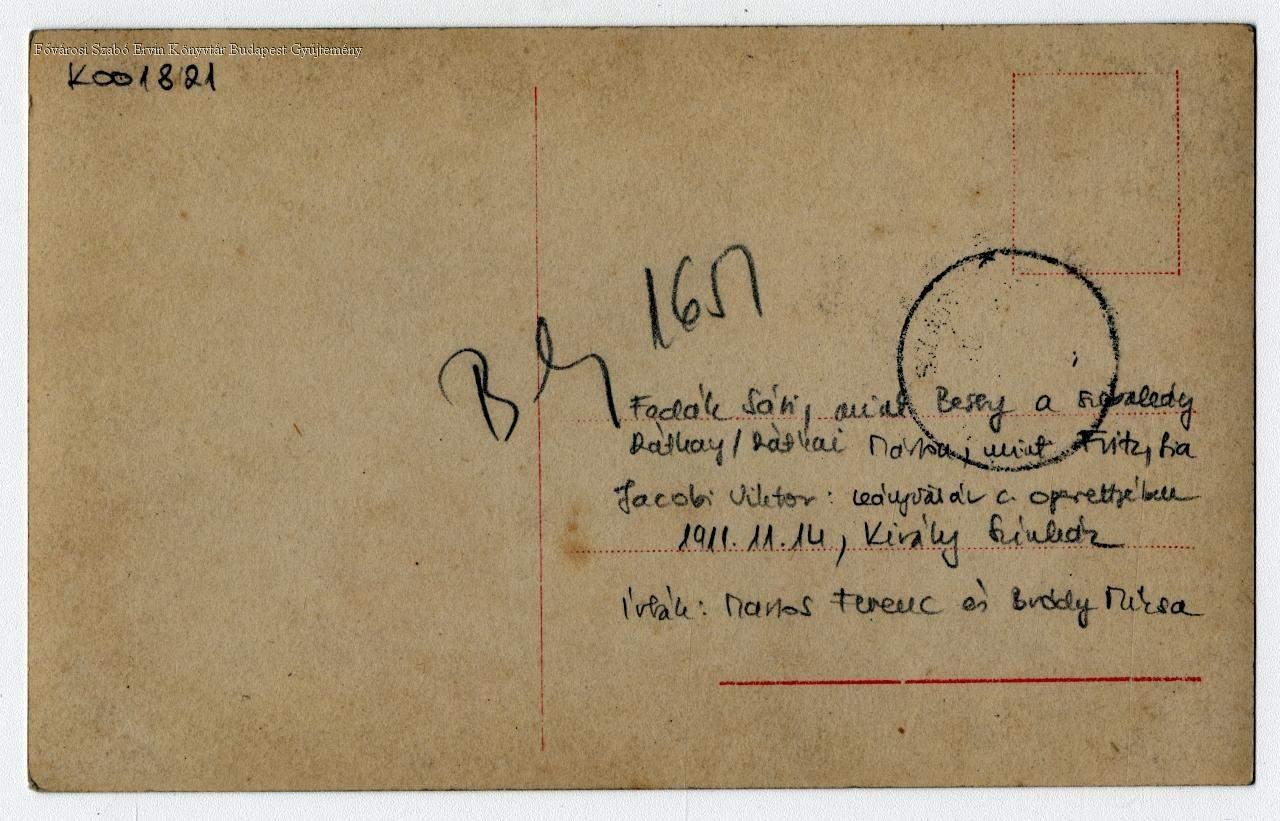 Fővárosi Szabó Ervin Könyvtár Budapest Gyűjtemény
K001821
1651
Fedák Sári, mint Bessy a
Rátkay / Rátkai Márton, mint Fritz, fia
Jacobi Viktor: Leányvásár c. operettjében
1911.11.14, Király Színház
Írták: Martos Ferenc és Bródy Miksa